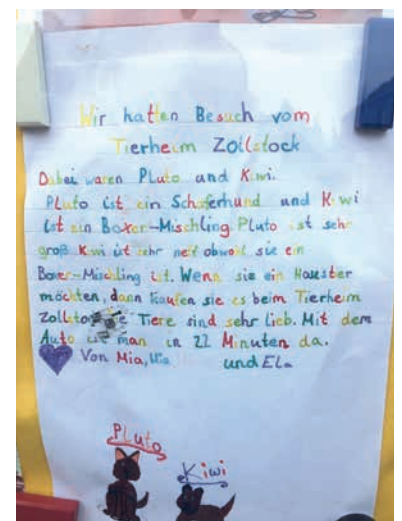 Wir hatten Besuch vom
Tierheim Zollstock
Dabei waren Pluto und Kiwi.
Pluto ist ein Schäferhund und Kiwi
ist ein Boxer-Mischling. Pluto ist sehr
groß. Kiwi ist sehr nett obwohl sie ein
Boxer-Mischling ist. Wenn sie ein Haustier
möchten, dann kaufen sie es beim Tierheim
Tiere sind sehr lieb. Mit dem
Auto ist man in 22 Minuten da.
Von Mia, und Ela
Pluto
Kiwi